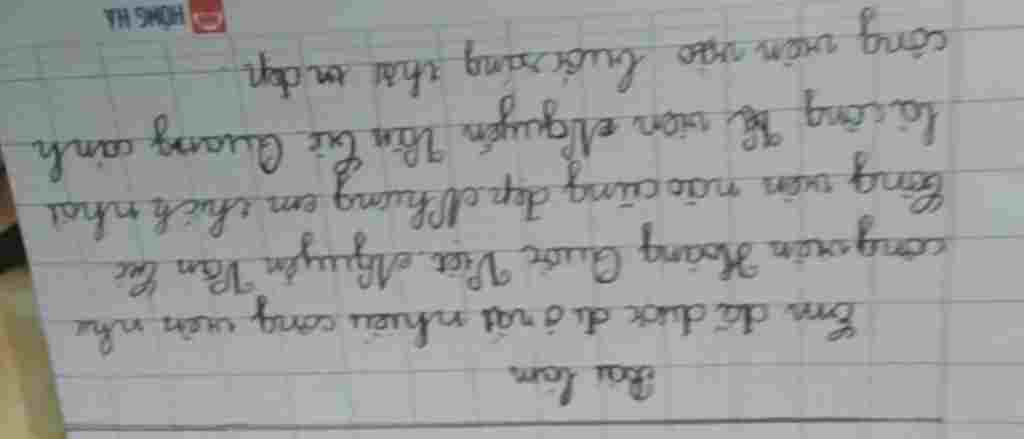 Bài làm
Em đã được đi ở rất nhiều công viên như
công viên Hoàng Quốc Việt, Nguyễn Văn Cừ
Công viên nào cũng đẹp. Nhưng em thích nhất
là công viên Nguyễn Văn Cừ. Quang cảnh
công viên vào buổi sáng thật đẹp
HONG HA